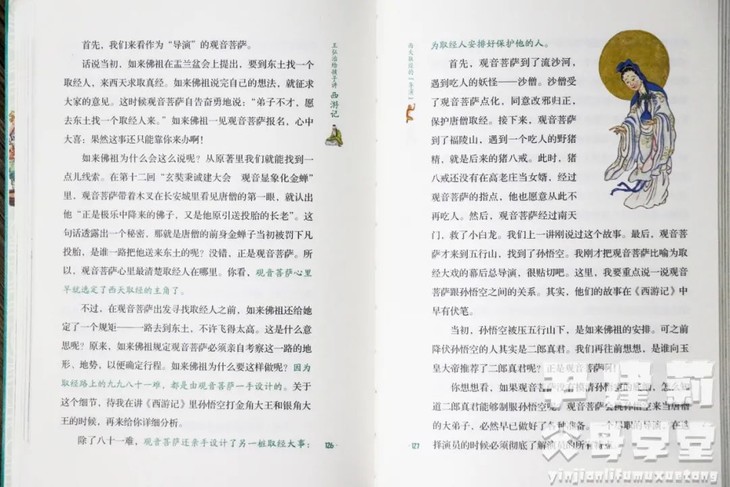 首先，我们来看作为“导演”的观音菩萨。
话说当初，如来佛祖在盂兰盆会上提出，要到东土找一个
取经人，来西天求取真经。如来佛祖说完自己的想法，就征求
大家的意见。这时候观音菩萨自告奋勇地说：“弟子不才，愿
去东土找一个取经人来。”如来佛祖一见观音菩萨报名，心中
大喜：果然这事还只能靠你来办啊！
如来佛祖为什么会这么说呢？从原著里我们就能找到一
点儿线索。在第十二回“玄奘秉诚建大会 观音显象化金蝉”
里，观音菩萨带着木叉在长安城里看见唐僧的第一眼，就认出
他“正是极乐中降来的佛子，又是他原引送投胎的长老”。这
句话透露出一个秘密，那就是唐僧的前身金蝉子当初被罚下凡
投胎，是谁一路把他送来东土的呢？没错，正是观音菩萨。所
以，观音菩萨心里最清楚取经人在哪里。你看，观音菩萨心里
早就选定了西天取经的主角了。
不过，在观音菩萨出发寻找取经人之前，如来佛祖还给她
定了一个规矩——一路去到东土，不许飞得太高。这是什么意
思呢？原来，如来佛祖规定观音菩萨必须亲自考察这一路的地
形、地势，以便确定行程。如来佛祖为什么要这样做呢？因为
取经路上的九九八十一难，都是由观音菩萨一手设计的。关于
这个细节，待我在讲《西游记》里孙悟空打金角大王和银角大
王的时候，再来给你详细分析。
除了八十一难，观音菩萨还亲手设计了另一桩取经大事：
126
给孩子讲
西游记
127
为取经人安排好保护他的人。
首先，观音菩萨到了流沙河，
遇到吃人的妖怪——沙僧。沙僧受
了观音菩萨点化，同意改邪归正，
保护唐僧取经。接下来，观音菩萨
到了福陵山，遇到一个吃人的野猪
精，就是后来的猪八戒。此时，猪
八戒还没有在高老庄当女婿，经过
观音菩萨的指点，他也愿意从此不
再吃人。然后，观音菩萨经过南天
门，救了小白龙。我们上一讲刚说过这个故事。最后，观音菩
萨才来到五行山，找到了孙悟空。我刚才把观音菩萨比喻为取
经大戏的幕后总导演，很贴切吧。这里，我要重点说一说观音
菩萨跟孙悟空之间的关系。其实，他们的故事在《西游记》中
早有伏笔。
当初，孙悟空被压五行山下，是如来佛祖的安排。可之前
降伏孙悟空的人其实是二郎真君。我们再往前想想，是谁向玉
皇大帝推荐了二郎真君呢？正是观音菩萨啊！
你想想看，如果观音菩萨没有摸清孙悟空的底，怎么知
道二郎真君能够制服孙悟空呢？观音菩萨要挑孙悟空来当唐僧
的大弟子，必然早已做好了各种准备。一个尽职的导演，在选
择演员的时候必须彻底了解演员的所有特点。
尹建莉
父母学堂
yinjianlifumuxuetang